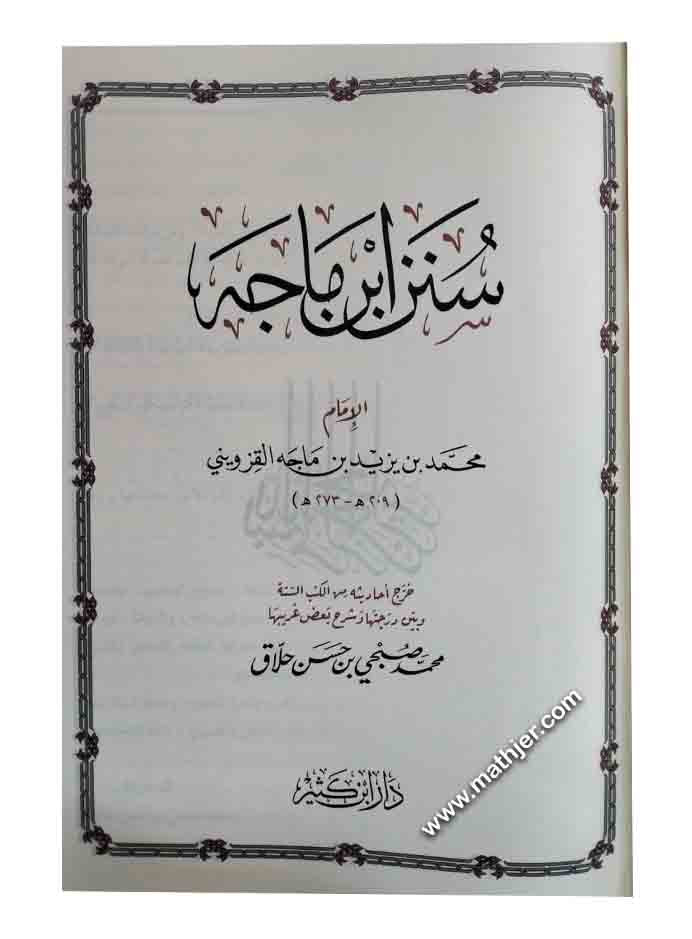 سُنَنُ ابْنِ مَاجَهْ
الإِمَام
محمّد بن يزيد بن ماجه القزويني
(٢٠٩ هـ - ٢٧٣ هـ)
خرّج أحاديثه من الكتب الستة
وبيّن درجتها وشرح بعض غريبها
محمّد صبحي بن حسن حلّاق
دار ابن كثير
www.mathjer.com